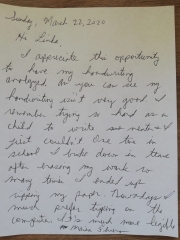 Sunday, March 22, 2020
Hi Linda,
I appreciate this opportunity
to have my handwriting
analyzed. As you can see my
handwriting isn't very good I
remember trying so hard as a
child to write so neat
just couldn't One time in
school I broke down in tears
after erasing my work so
many times I ended up
ripping my paper. Nowadays I
much prefer typing on the
computer it's much more legible